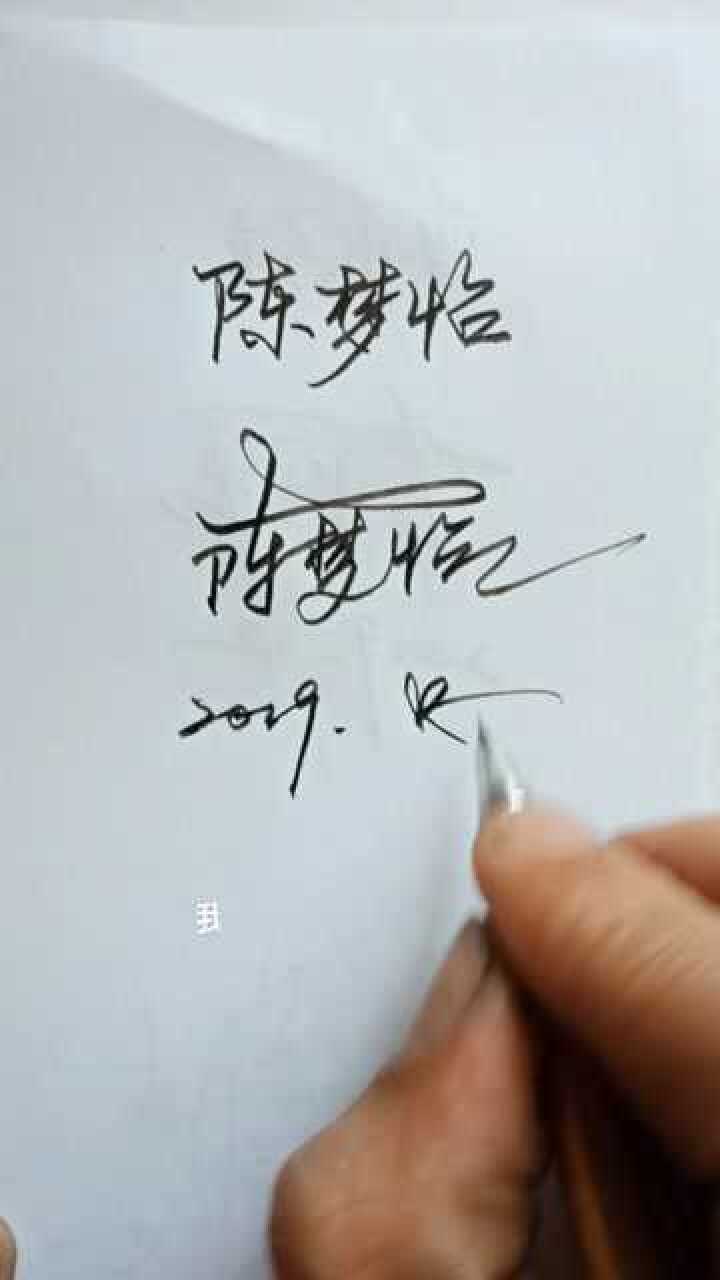 陈梦怡
陈梦怡
2019.